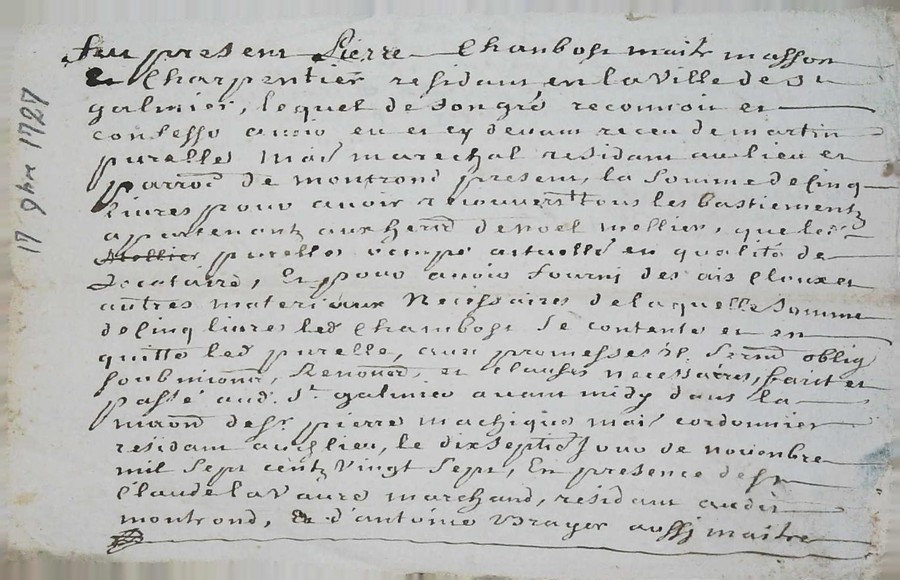 17 9bre 1727
Fut present Pierre Chambost maitr masson
& Charpentier residant en la Ville de St
galmier, lequel de son gré reconnoit et
confesse avoir eu et cy devant receu de martin
purelles mai marechal residant au lieu et
parroē de montrond present, la Somme de cinq
Livres pour avoir recouvert tous les bastiements
apartenants aux herrd de noel mellier, que led
purelles occupe actuellet en qualité de
Locataire, Et pour avoir fourni des ais Cloux et
autres materiaux Necessaires de laquelle somme
de cinq livres led Chambost se contente et en
quitte led purelle, aux promesses sermt oblig
soubmions, Renond, et clauses necessaires, fait et
passé aud. St galmier avant midy dans la
maion de sr pierre machique mai cordonnier
residant aud lieu, le dixseptie Jour de novembre
mil Sept cents Vingt Sept, En presence de sr
Claude lavaure marchand, residant audit
montrond, Et d'antoine Vrayer aussy maitre